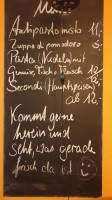 Menü
Antipasto misto 11,-
Zuppa di pomodoro 5,-
Pasta (Nudeln) mit
Gemüse, Fisch o Fleisch 10,-
Secondi (Hauptspeisen)
ab 12,-
Kommt gerne
herein und
seht, was gerade
frisch da ist